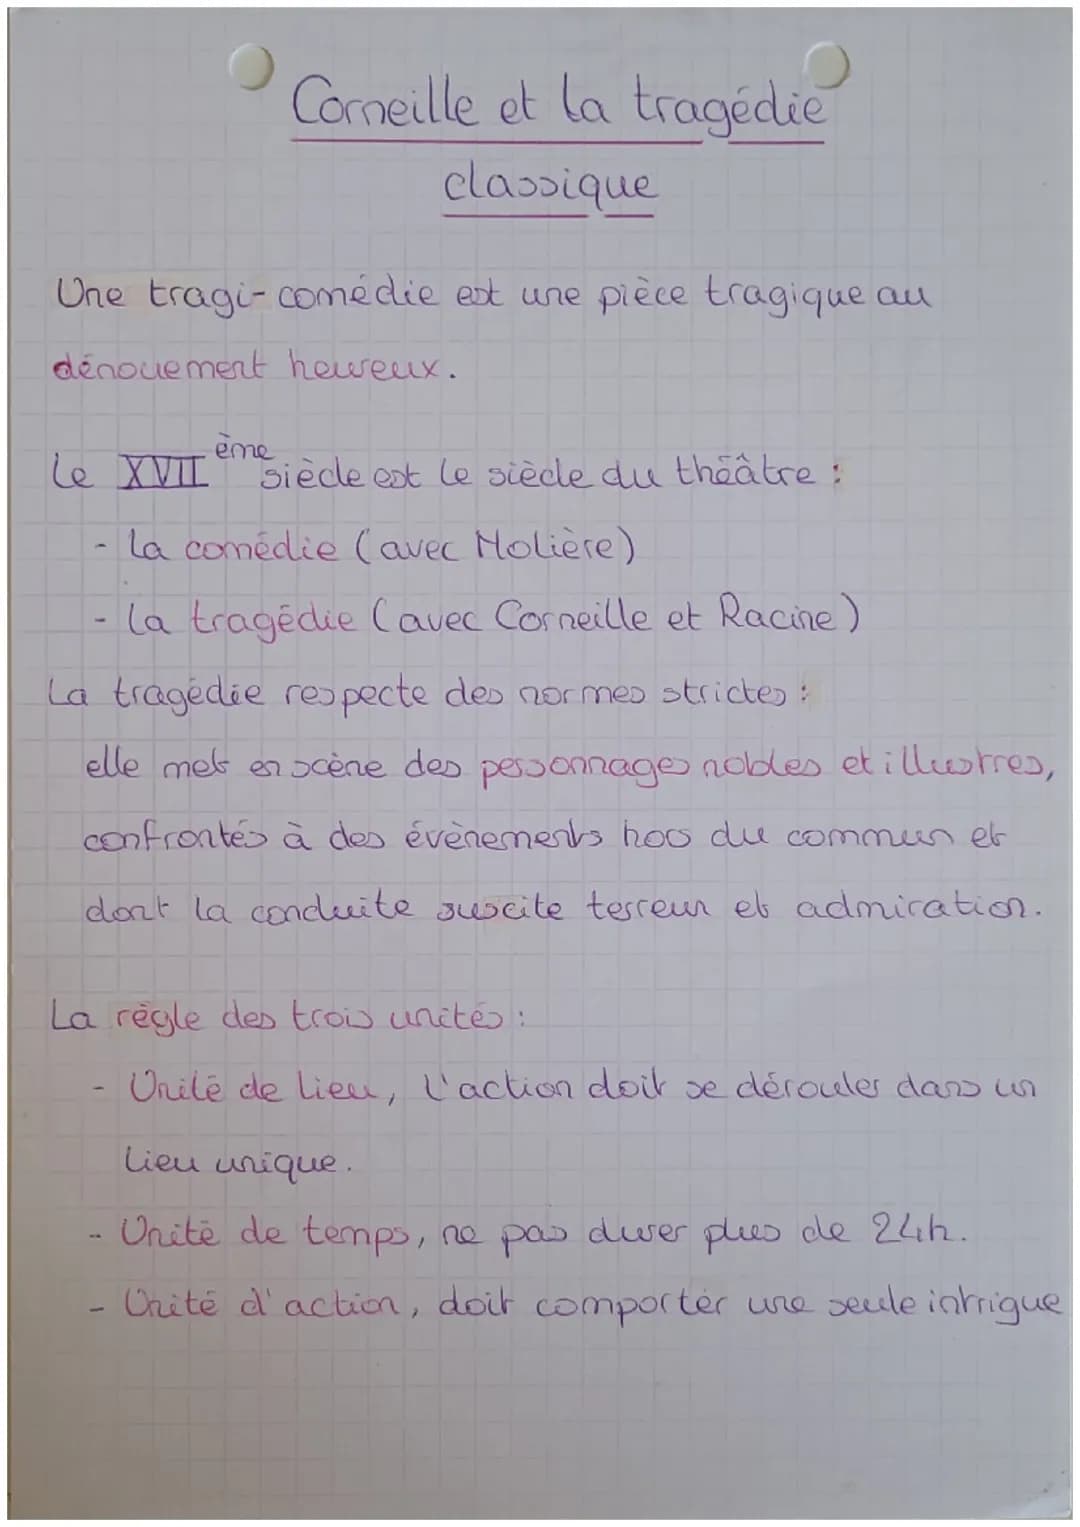 Corneille et la tragédie
classique
Une tragi-comédie est une pièce tragique au
dénouement heureux.
Le XVII ème siècle est le siècle du théâtre :
- La comédie (avec Molière)
- La tragédie (avec Corneille et Racine)
La tragédie respecte des normes strictes :
elle met en scène des personnages nobles et illustres,
confrontés à des évènements hors du commun et
dont la conduite suscite terreur et admiration.
La règle des trois unités :
- Unité de lieu, l'action doit se dérouler dans un
lieu unique.
- Unité de temps, ne pas durer plus de 24h.
- Unité d'action, doit comporter une seule intrigue